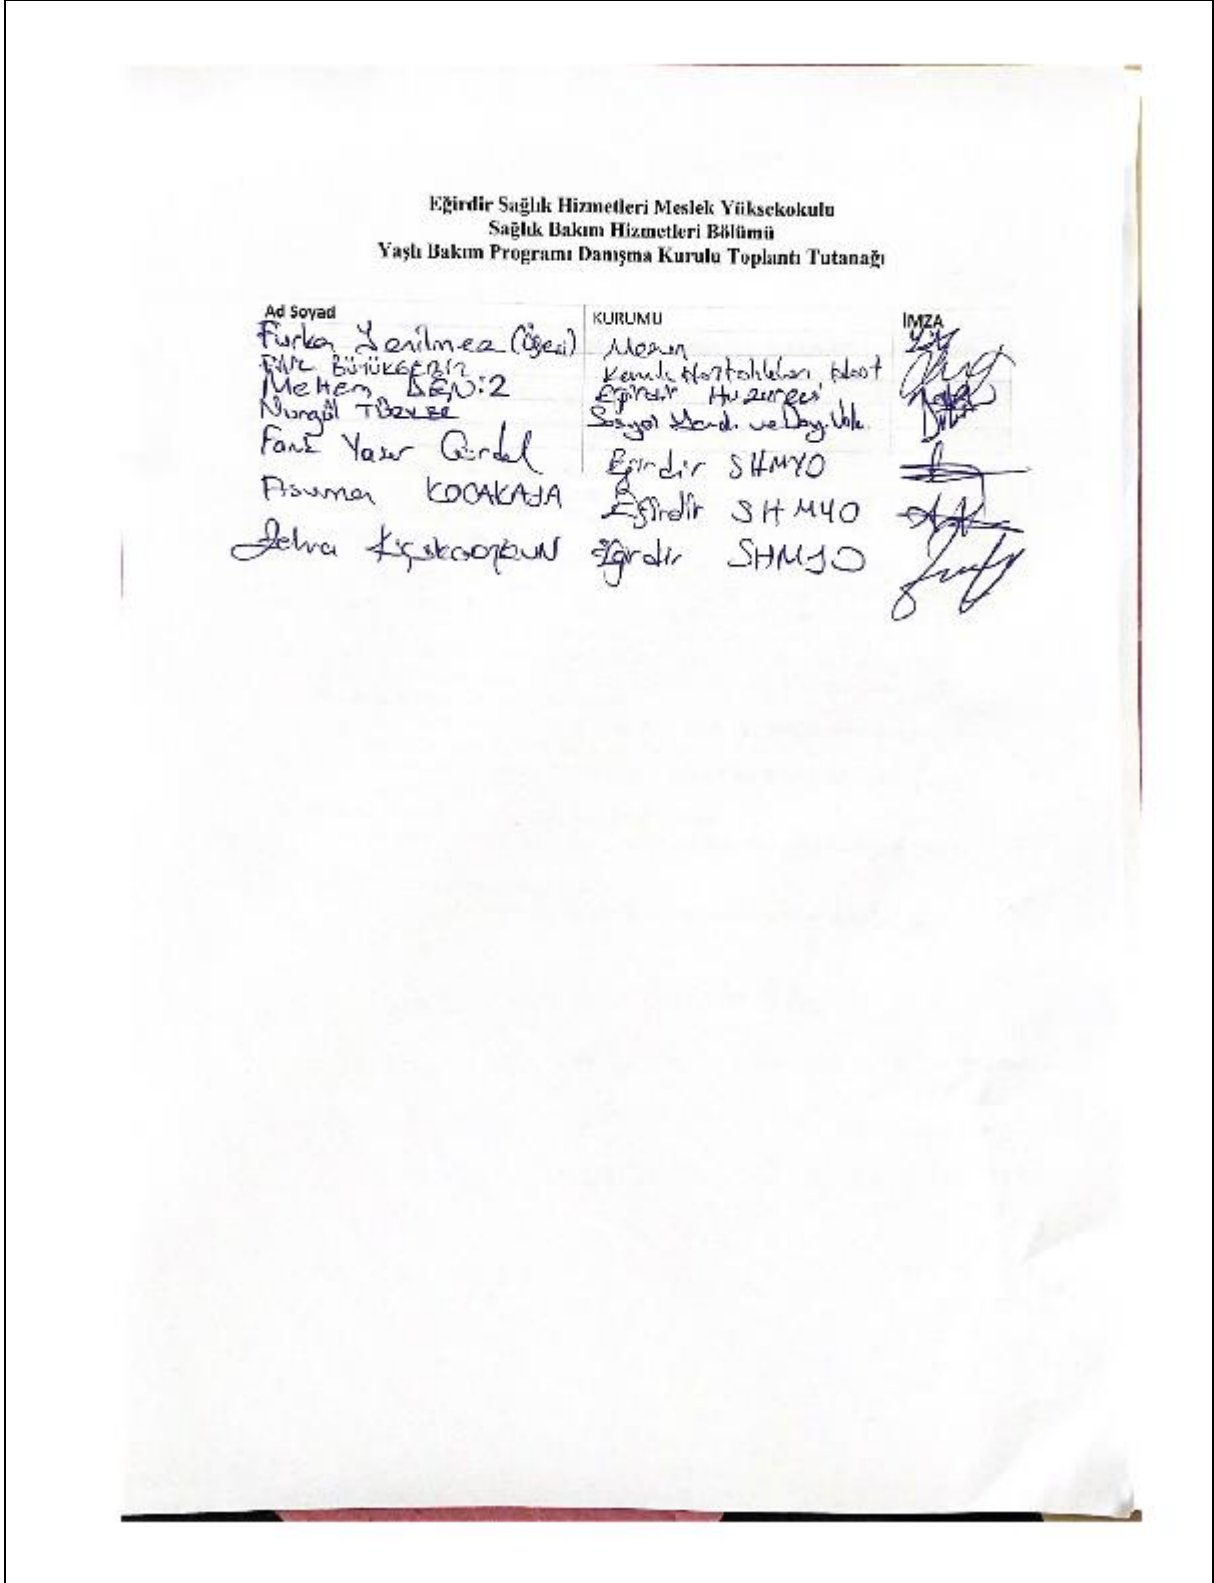 Eğirdir Sağlık Hizmetleri Meslek Yüksekokulu
Sağlık Bakım Hizmetleri Bölümü
Yaşlı Bakım Programı Danışma Kurulu Toplantı Tutanağı
Ad Soyad KURUMU İMZA
Yenilmez Mezun
BÜYÜKGEBİZ Kemik Hastalıkları
Meltem DENİZ Eğirdir Huzurevi
Nurgül Sosyal Yard. ve Day. Vak.
Yaser Eğirdir SHMYO
Asuman KOCAKAYA Eğirdir SHMYO
Zehra Eğirdir SHMYO